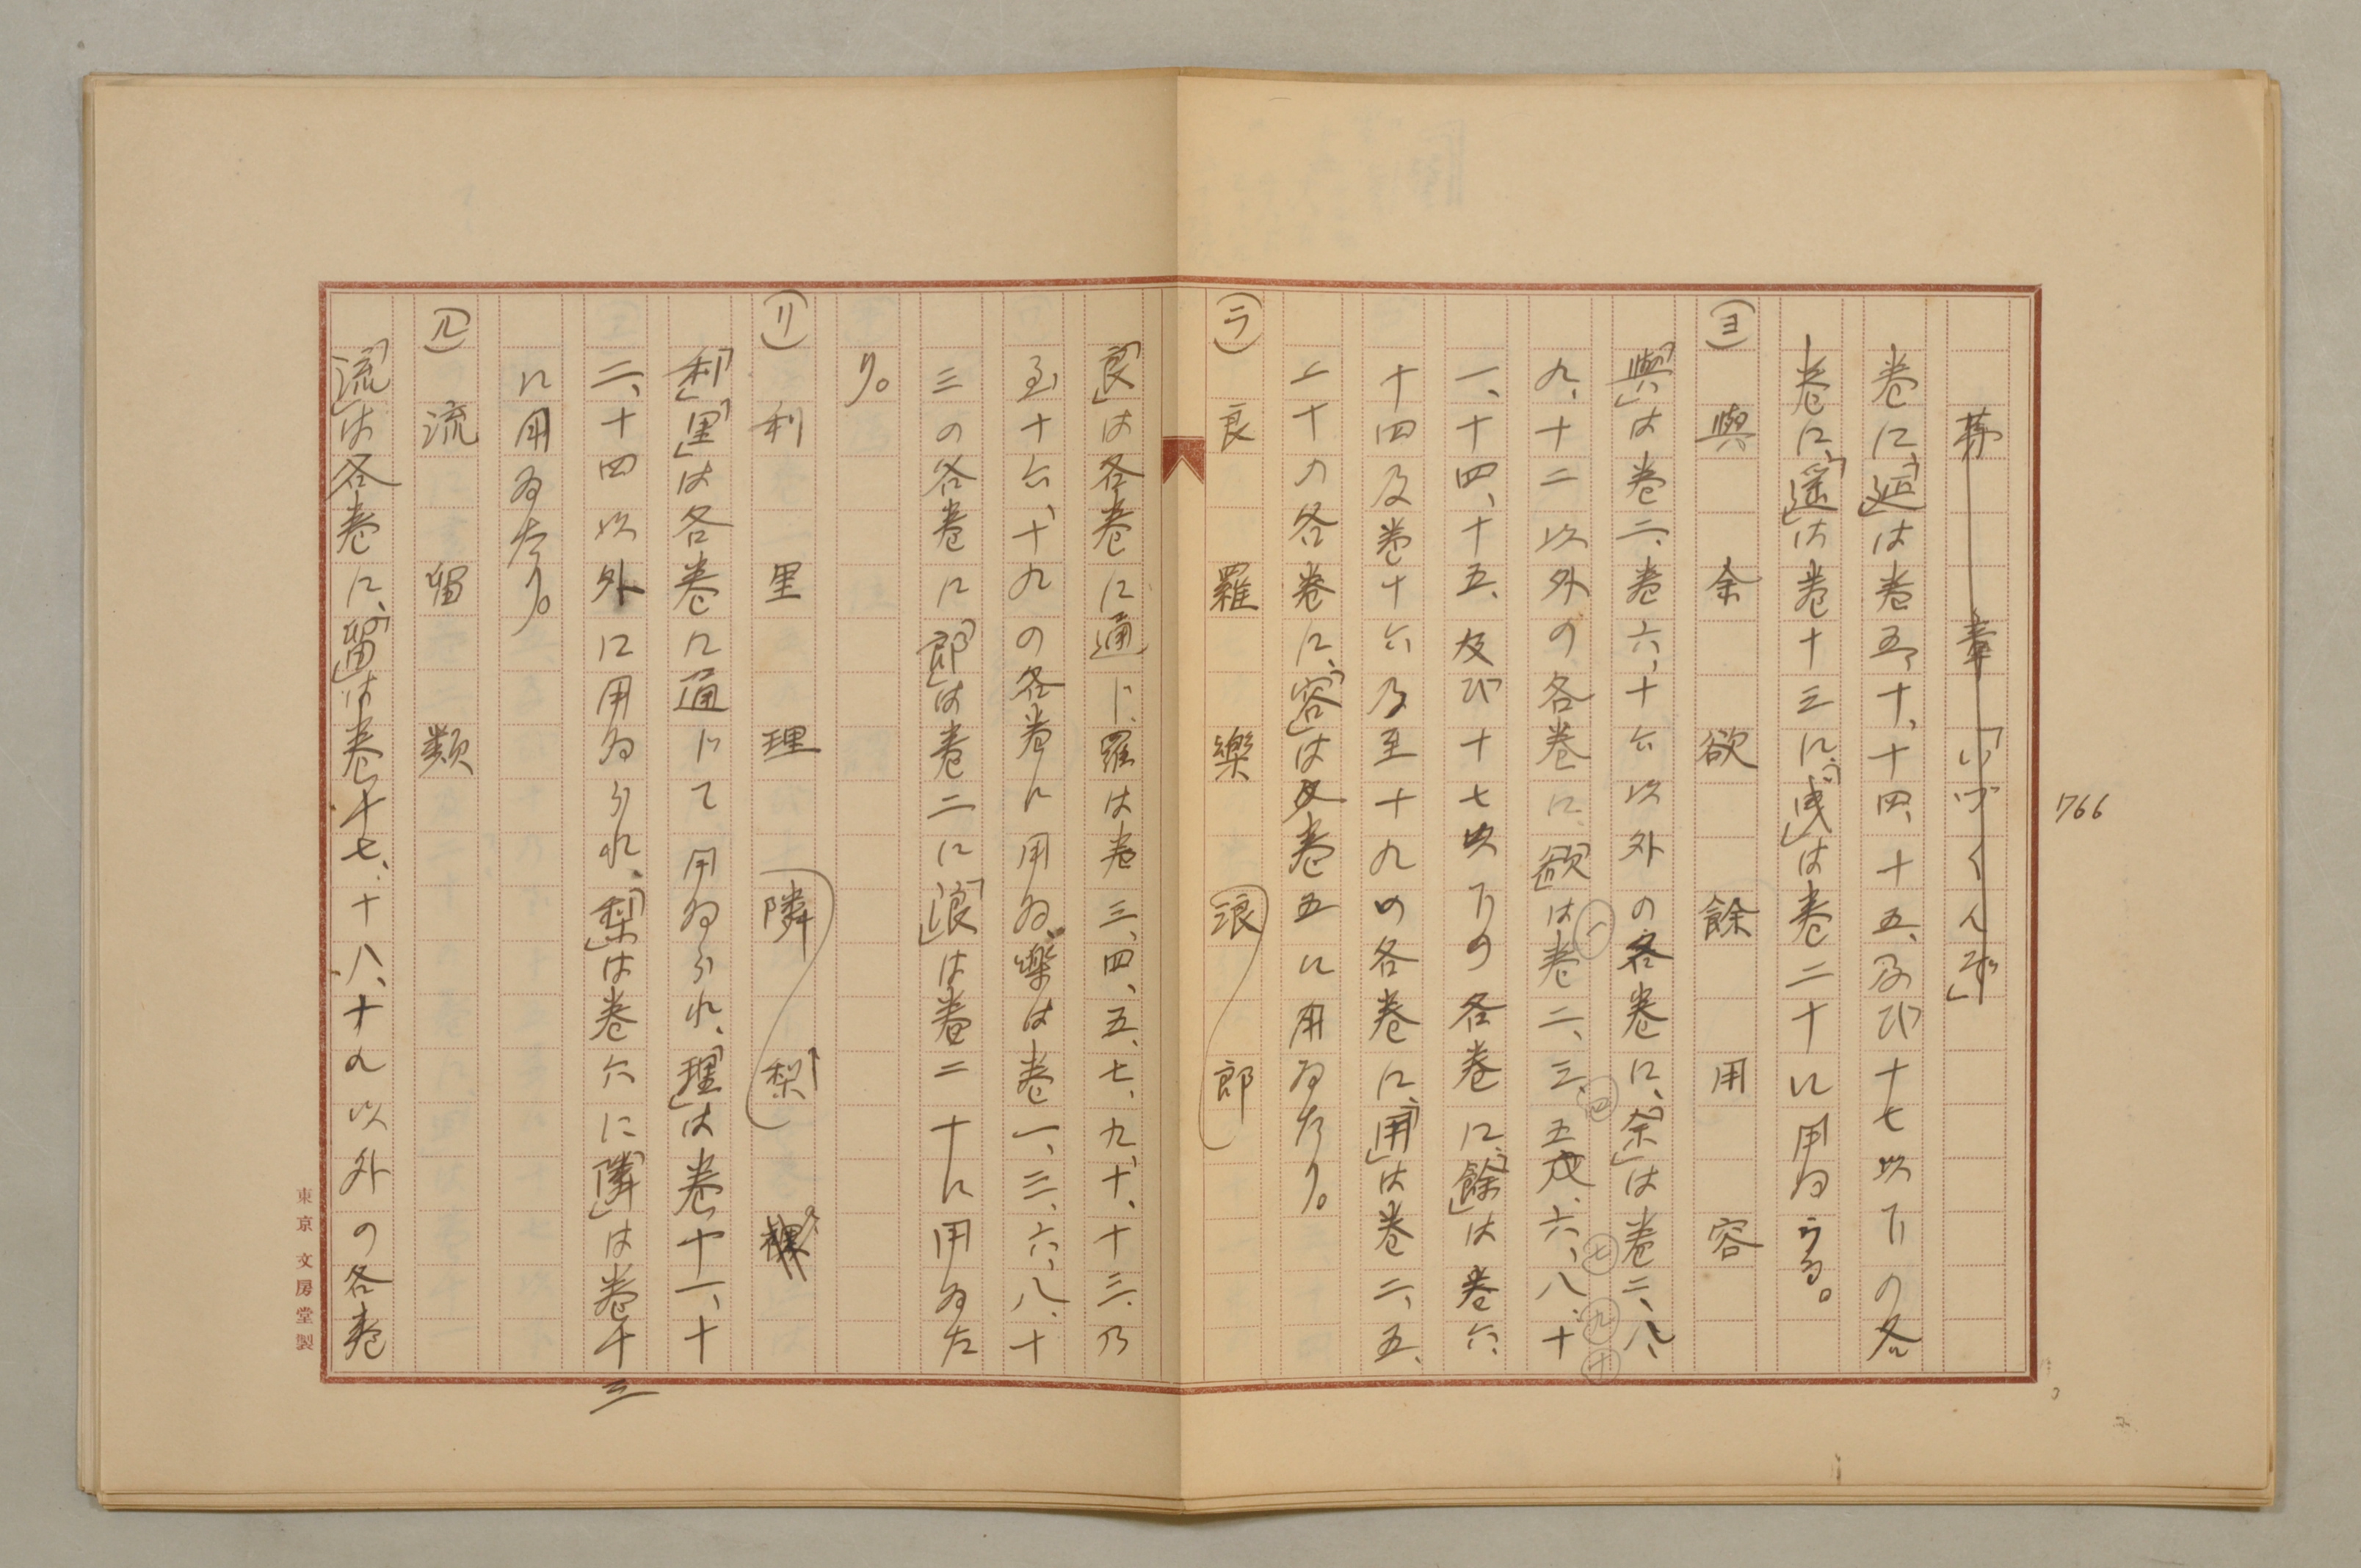 766
第 章「いづくんぞ」
巻に、「延」は巻五、十、十四、十五、及び十七以下の各
巻に、「遥」は巻十三に、「曳」は巻二十に用ゐらる。
(ヨ) 與 余 欲 餘 用 容
「與」は巻二、巻六、十六以外の各巻に、「余」は巻二、八、
九、十二以外の各巻に、「欲」は巻二、三、五、六、八、十
一、十四、十五、及び十七以下の各巻に、「餘」は巻六、
十四及巻十六乃至十九の各巻に、「用」は巻二、五、
二十の各巻に、「容」は巻五に用ゐたり。
(ラ) 良 羅 樂 浪 郎
「良」は各巻に通じ、羅は巻三、四、五、七、九、十、十三、乃
至十六、十九の各巻に用ゐ、樂は巻一、三、六、八、十
三の各巻に「郎」は巻二に「浪」は巻二十に用ゐた
り。
(リ) 利 里 理 隣 梨
「利」「里」は各巻に通じて用ゐられ、「理」は巻十一、十
二、十四以外に用ゐられ、「梨」は巻六に「隣」は巻十三
に用ゐたり。
(ル) 流 留 類
「流」は各巻に、「留」は巻十七、十八、十九以外の各巻
七 九 十 四
東京 文房堂製